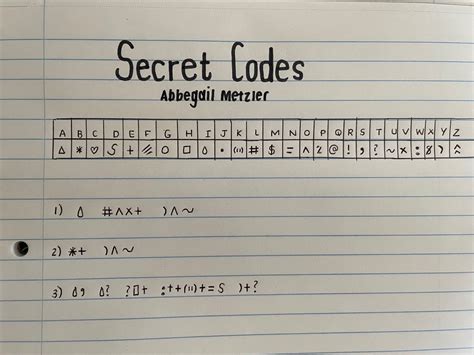 Secret Codes
Abbegail Metzler
A B C D E F G H I J K L M N O P Q R S T U V W X Y Z
△ * ♡ S + ⫻ O □ ◊ • (11) # $ = ^ 2 @ ! , ? ~ × : 8 ) ^^
1) ◊ #^×+ )^~
2) *+ )^~
3) ◊, ◊? ?□+ :++(11)+=S )+?